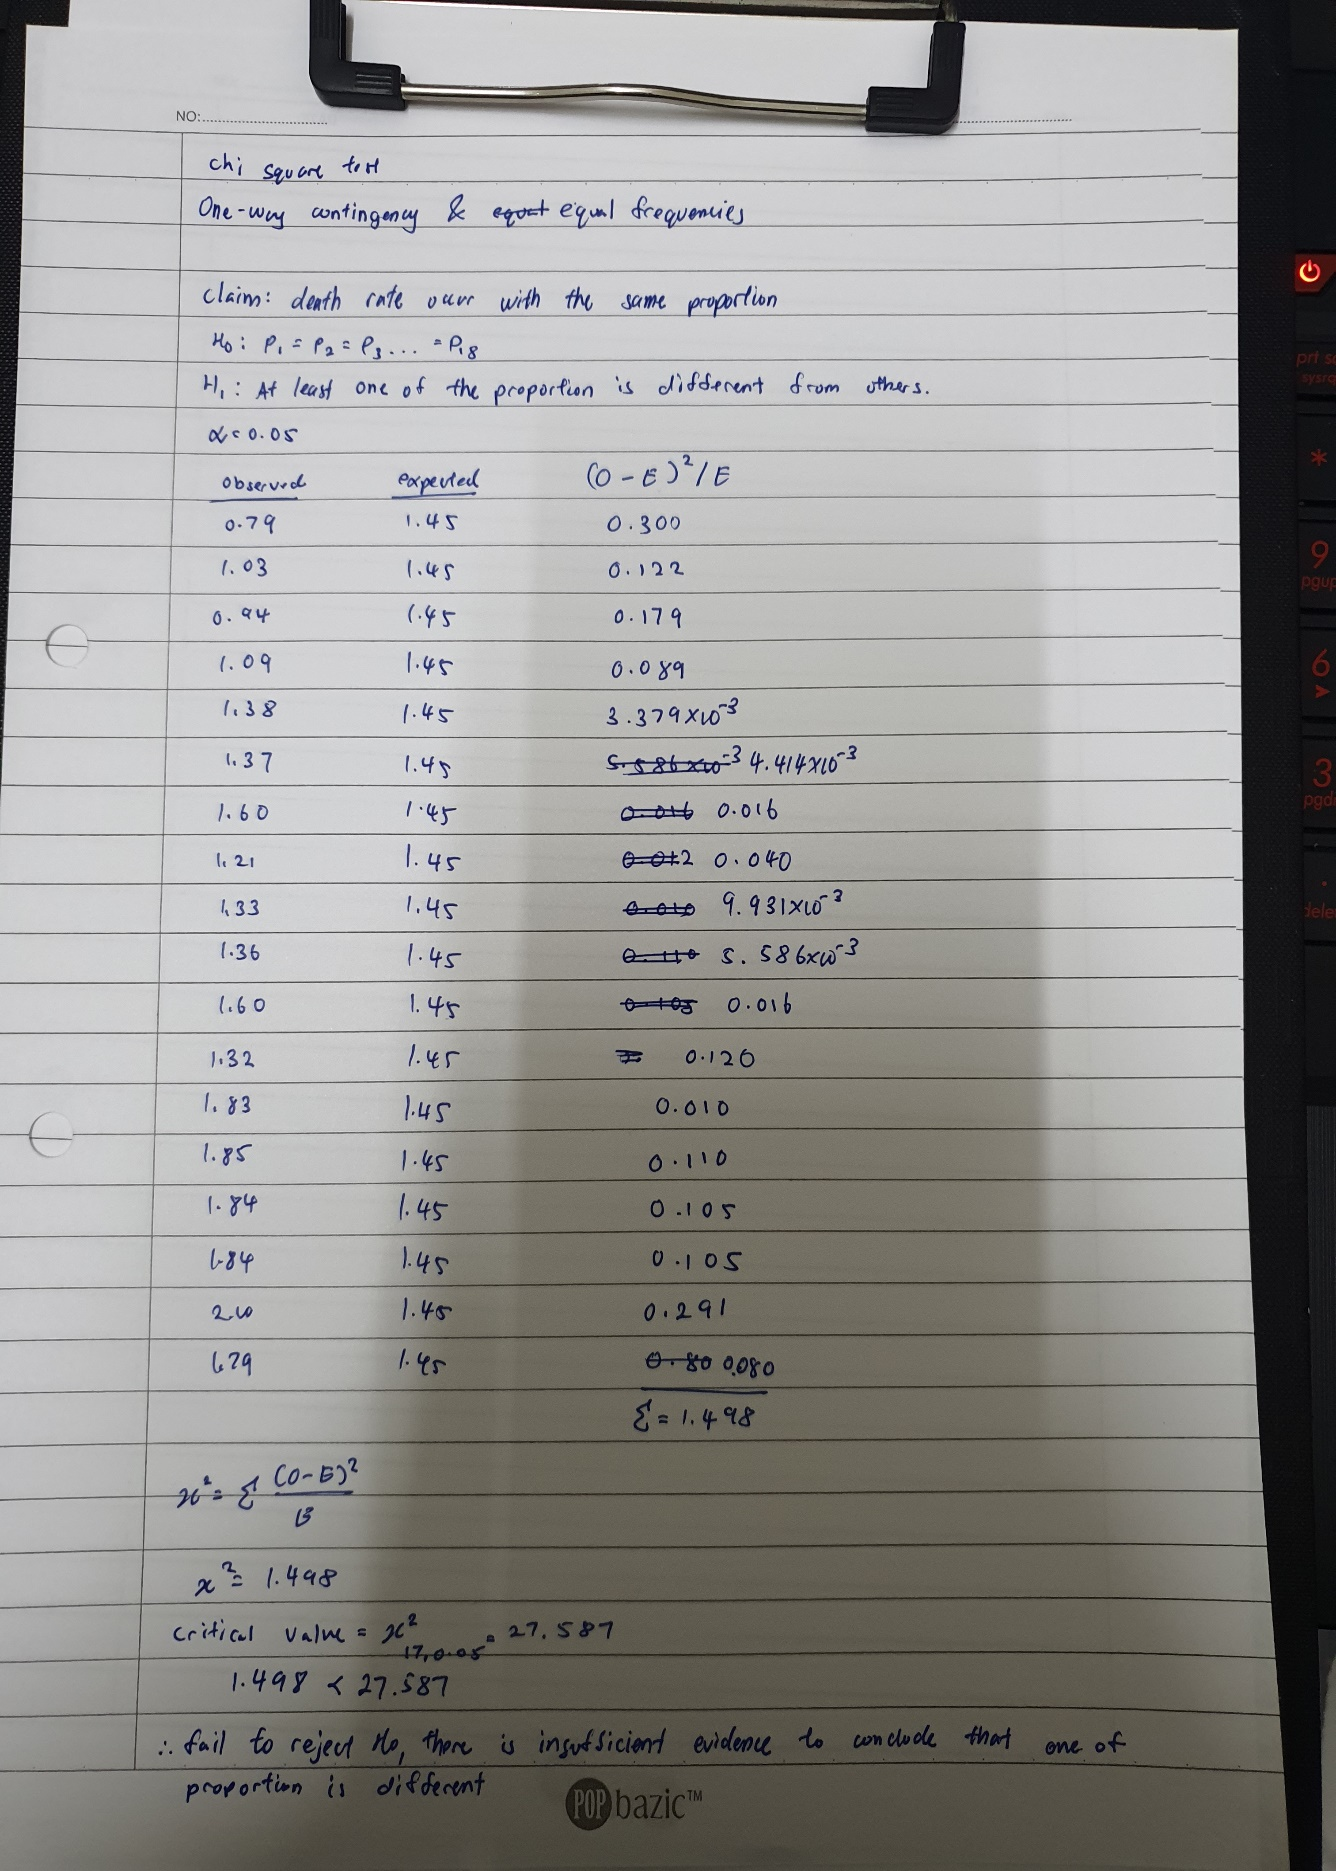 NO:
chi square test
One-way contingency & equat equal frequencies
Claim: death rate occur with the same proportion
H₀: P₁ = P₂ = P₃ ... = P₁₈
H₁: At least one of the proportion is different from others.
α = 0.05
observed expected (O - E)²/E
0.79 1.45 0.300
1.03 1.45 0.122
0.94 1.45 0.179
1.09 1.45 0.089
1.38 1.45 3.379×10⁻³
1.37 1.45 5.586×10⁻³ 4.414×10⁻³
1.60 1.45 0.016 0.016
1.21 1.45 0.012 0.040
1.33 1.45 0.010 9.931×10⁻³
1.36 1.45 0.110 5.586×10⁻³
1.60 1.45 0.105 0.016
1.32 1.45 0.120
1.83 1.45 0.010
1.85 1.45 0.110
1.84 1.45 0.105
1.84 1.45 0.105
2.10 1.45 0.291
1.79 1.45 0.80 0.080
Σ = 1.498
x² = Σ (O-E)²
E
x² = 1.498
critical value = x²17,0.05 = 27.587
1.498 < 27.587
∴ fail to reject H₀, there is insufficient evidence to conclude that one of
proportion is different
POP bazic™
prt sc
sysrq
*
9
pgup
6
3
pgd
.
dele